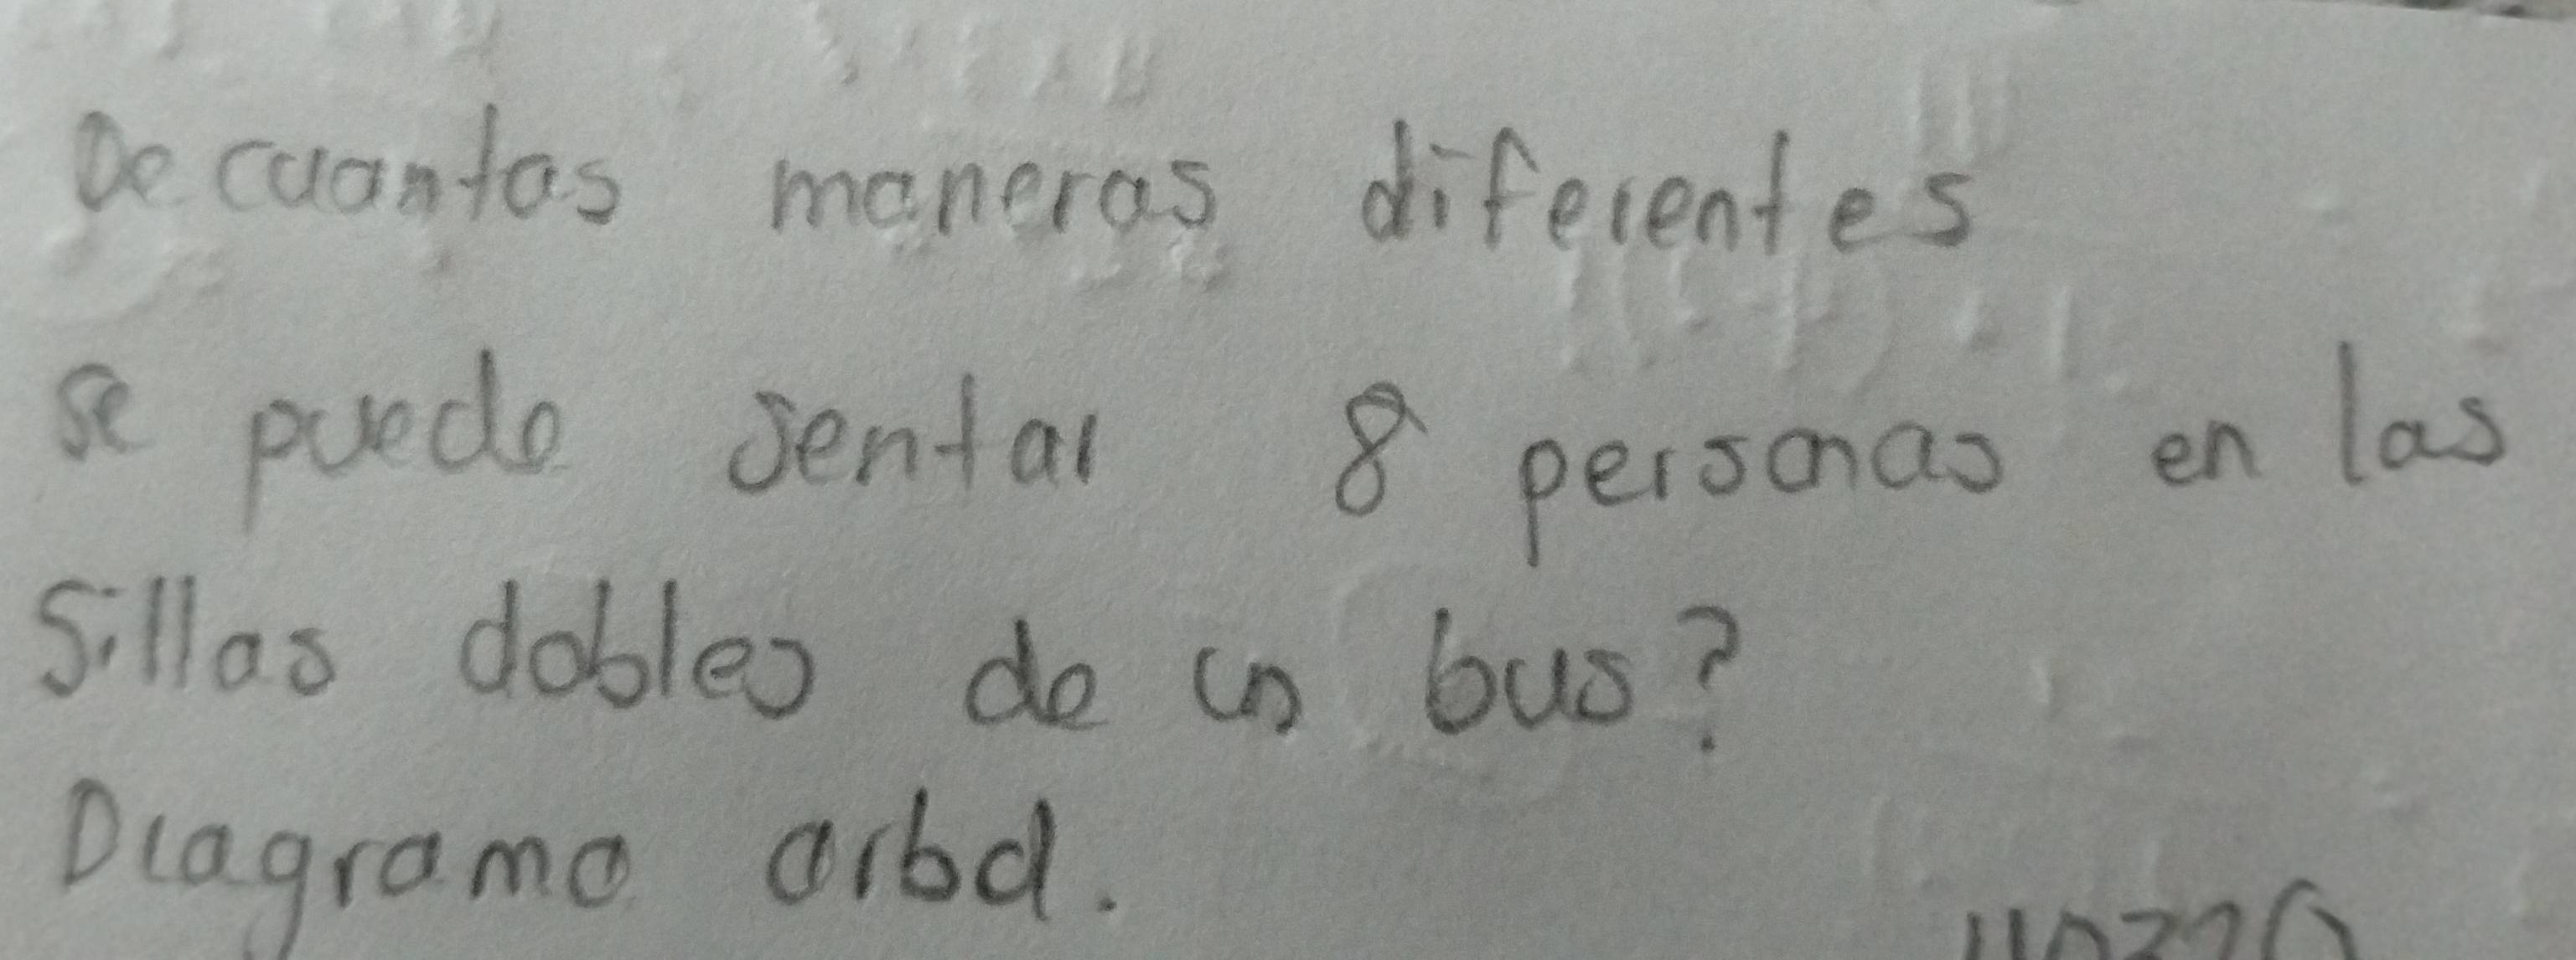 De cuantas maneras diferentes
se puede sentar 8 personas en las
Sillas dobles de un bus?
Diagrama arbol.
40320